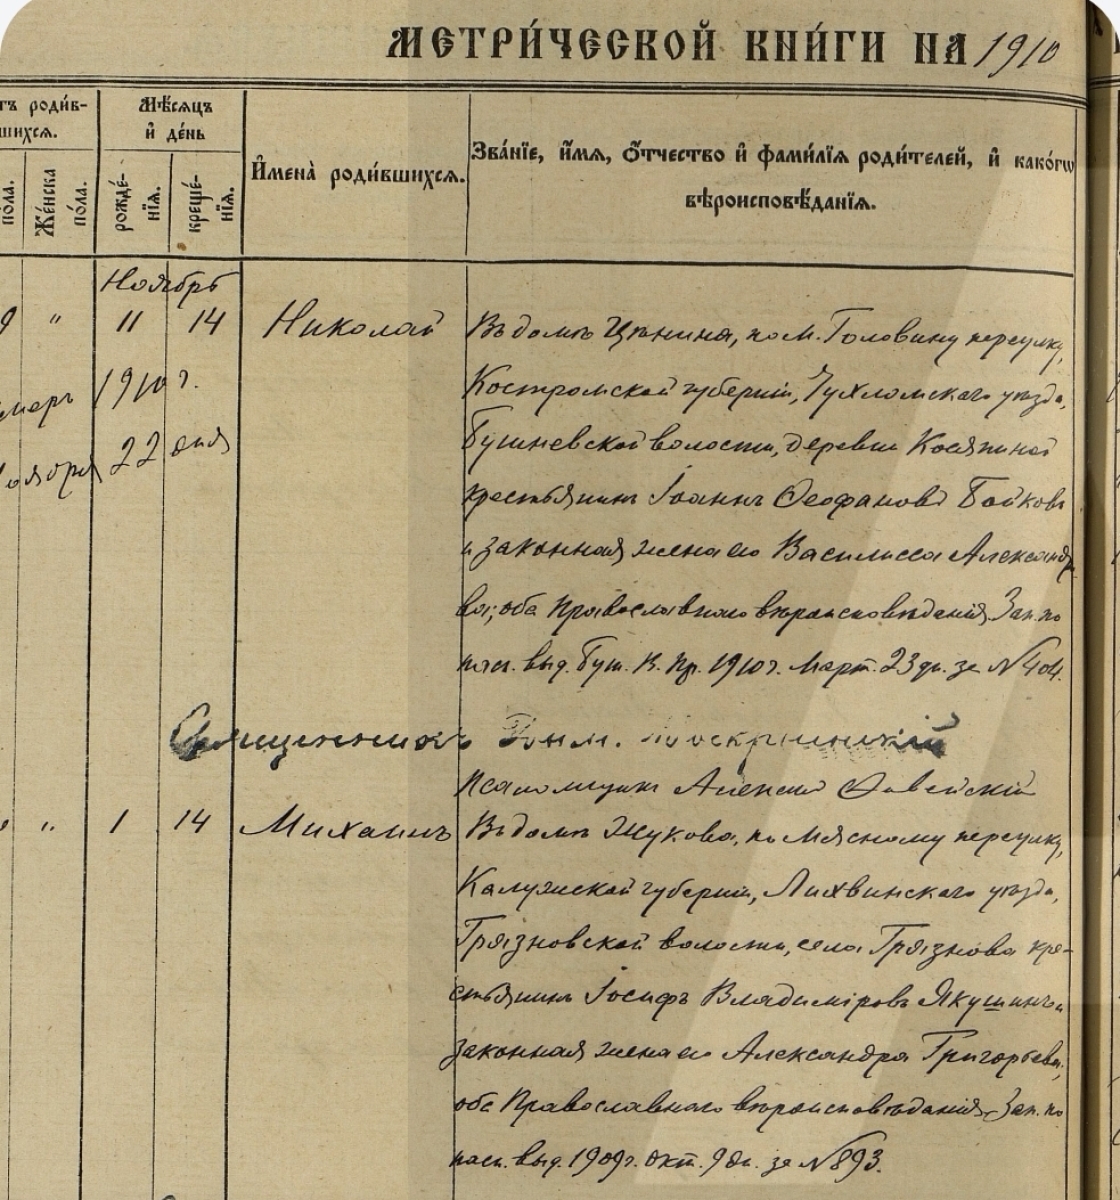 МЕТРИ́ЧЕСКОЙ КНИ́ГИ НА 1910
роди́в-
шихсѧ.
Мѣ́сѧцъ
и҆ де́нь
И҆мена̀ роди́вшихсѧ.
Зва́нїе, и҆́мѧ, ѻ҆́тчество и҆ фами́лїѧ роди́телей, и҆ како́гѡ
вѣроисповѣ́данїѧ.
по́ла.
Же́нска
по́ла.
рожде́-
нїѧ.
креще́-
нїѧ.
Ноябрь
9 " 11 14 Николай Въ домѣ Цѣнина, по М. Головину переулку,
Костромской губерніи, Чухломскаго уѣзда,
1910 г.
Бушневской волости, деревни
22 дня
крестьянинъ Іоаннъ Ѳеофановъ Бойковъ
и законная жена его Василисса Александро-
ва; оба Православнаго вѣроисповѣданія. Зап. по
пасп. выд. Буш. В. Пр. 1910 г. Март. 23 дн. за № 404.
Священникъ
Псаломщикъ Алексій
" 1 14 Михаилъ Въ домѣ Жукова, по Мясному переулку,
Калужской губерніи, Лихвинскаго уѣзда,
Грязновской волости, села Грязнова кре-
стьянинъ Іосифъ Владиміровъ Якушинъ и
законная жена его Александра Григорьева,
оба Православнаго вѣроисповѣданія. Зап. по
пасп. выд. 1909 г. Окт. 9 дн. за № 893.